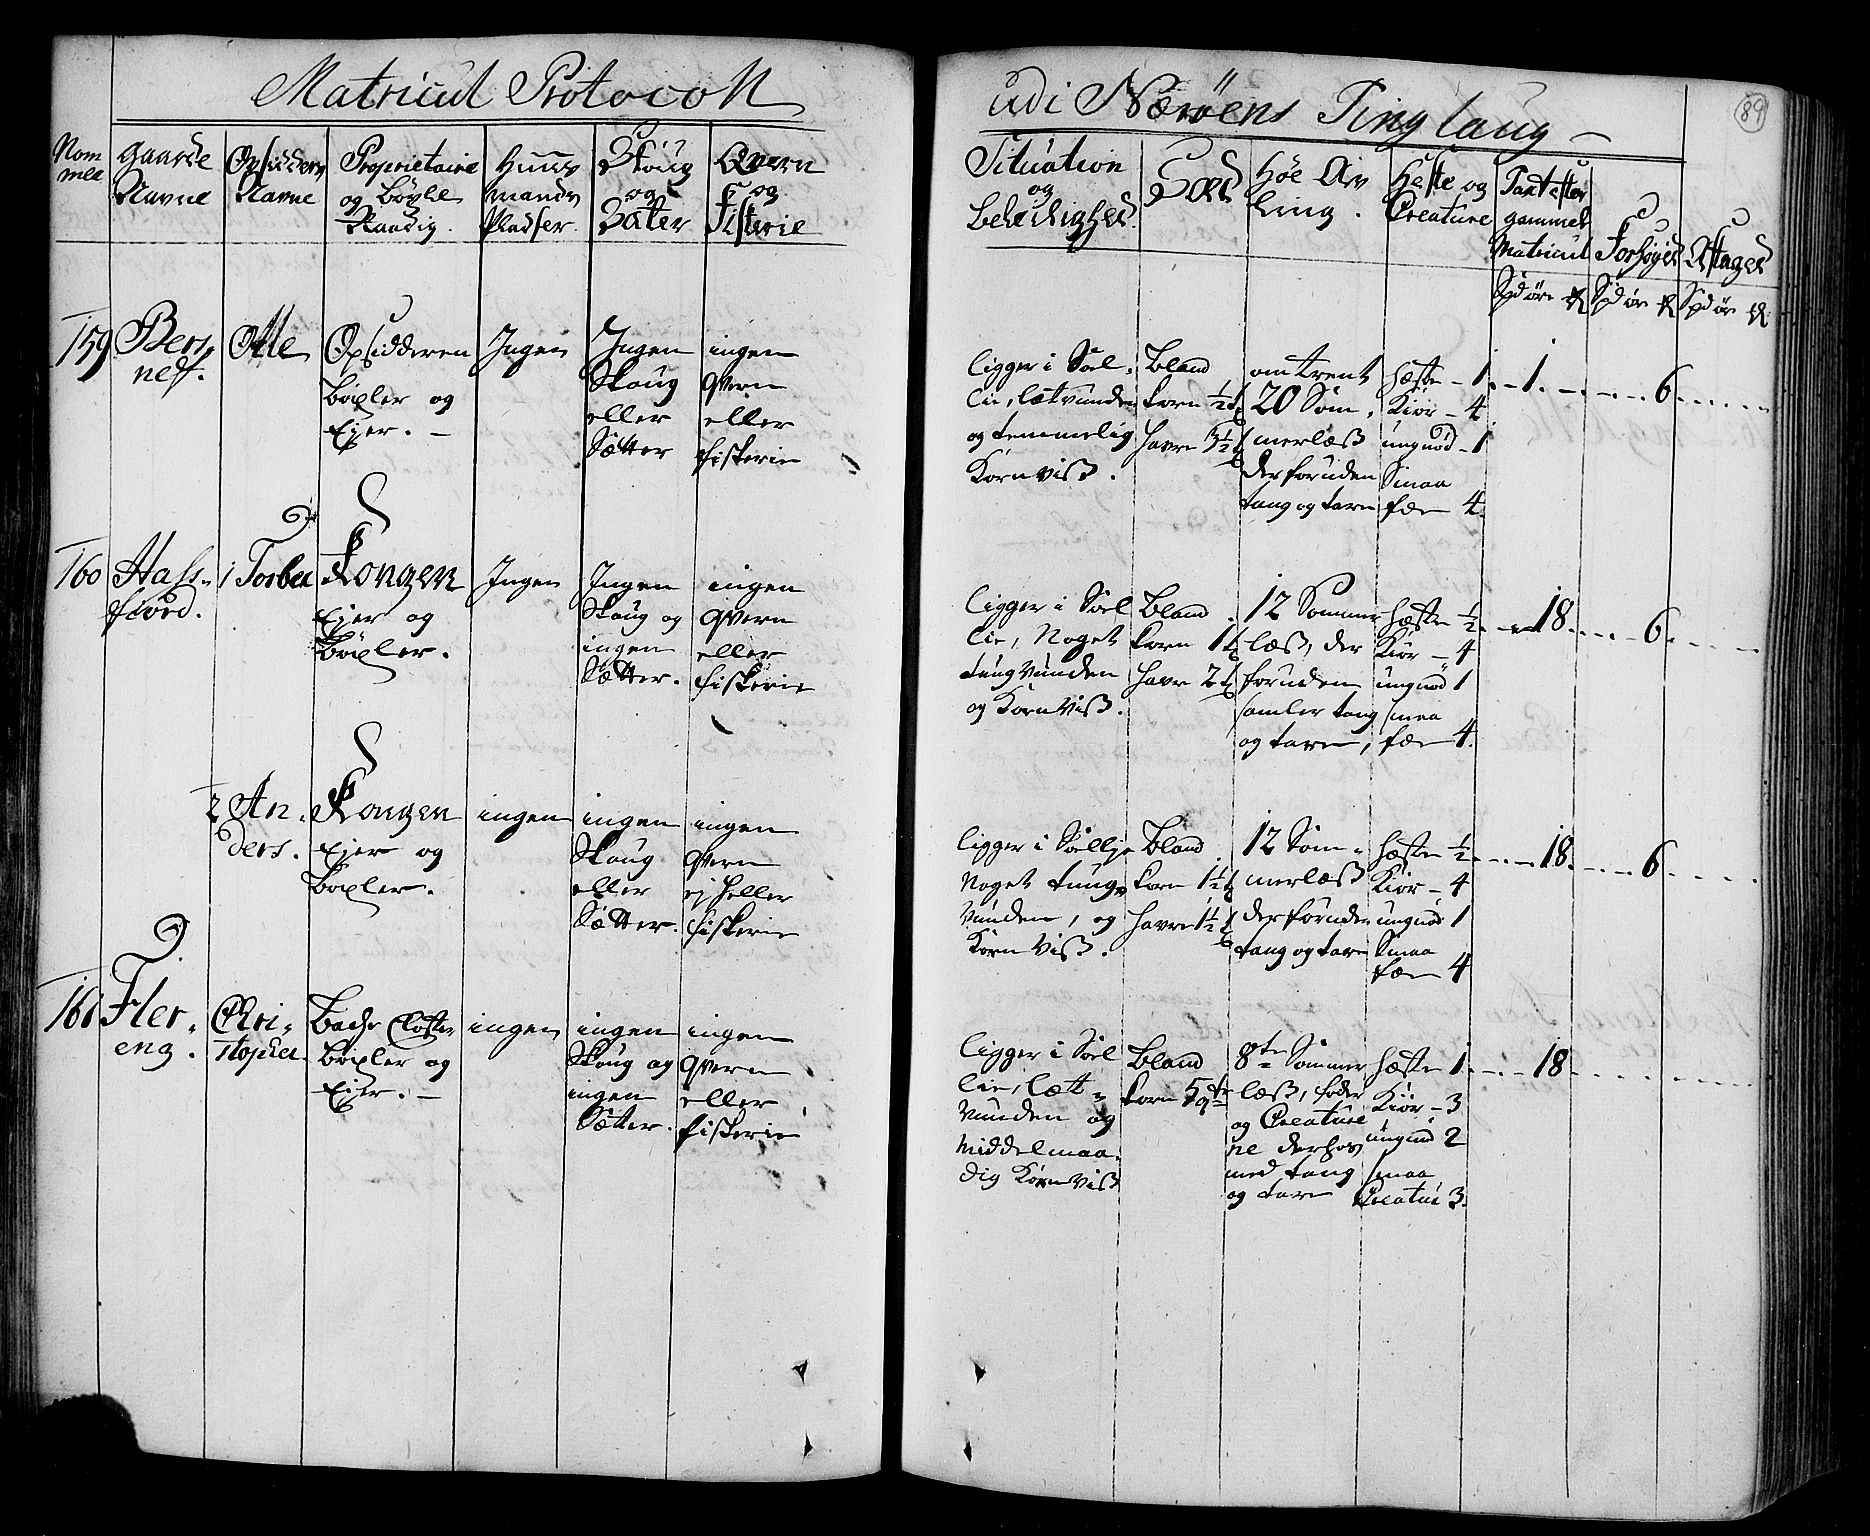 Matricul Protocoll
udi Nærøens Ting laug
89
Nom
mer
Gaarde
Navne
Opsidders
Navne
Proprietairer
og Böxle
Raadig.
Huus
mands
Pladser.
Skoug
og
Sæter
Qvern
og
Fiskerie
Situation
og
beleilighed.
Sæd
Høe Av
ling.
Heste og
Creature
Taxt efter
gammel
Matricul
Forhøyed
Aftaged
Spd ör
Spd ör
Spd ör
159
Bers
nes.
Olle
Opsidderen
böxler og
Ejer. –
Ingen
Ingen
Skoug
eller
Sætter
ingen
qvern
eller
fiskerie
ligger i Soel
lie, letvunden
og temmelig
Kornviss.
Bland
korn 1/2 t
havre 3 1/2 t
omtrent
20 Som
merlæss
derforuden
tang og tare
hæste – 1
Kiör – 4
ungnöd – 1
Smaa
fæe 4.
1. – – – 6 – – –
160
Hals
fiord.
1 Torber
Kongen
Ejer og
böxler.
Ingen
Ingen
Skoug og
ingen
Sætter.
ingen
qvern
eller
fiskerie
ligger i Soel
lie, Noget
tungvunden
og Kornviss.
Bland
korn 1 t
havre 2 t
12 Sommer
læss, der
foruden
samler tang
og tare,
hæste 1/2
Kiör – 4
ungnöd 1
smaa
fæe 4.
18. – – 6. – – –
2 An
ders.
Kongen
Ejer og
böxler.
ingen
ingen
Skoug
eller
Sætter.
ingen
qvern
ej heller
fiskerie
ligger i Soellje
Noget tung
vunden, og
Korn viss.
Bland
korn 1 1/2 t
havre 1 1/2 t
12 Som
merlæss
derforuden
tang og tare
hæste 1/2
Kiör – 4
ungnöd 1
Smaa
fæe 4
18. – – 6 – – –
161
Fler
eng.
Chri
stopher
Bache Closter
böxler og
Ejer. –
ingen
ingen
Skoug og
ingen
Sætter.
ingen
qvern
eller
fiskerie
ligger i Soel
lie, læt
vunden og
middelmaa
dig Kornviss
Bland
korn 5 qtr
8te Sommer
læss, föder
og Creature
ne derhos
med tang
og tare
hæste 1
Kiör – 3
ungnöd 2
smaa
Creatur 3.
18 – – –